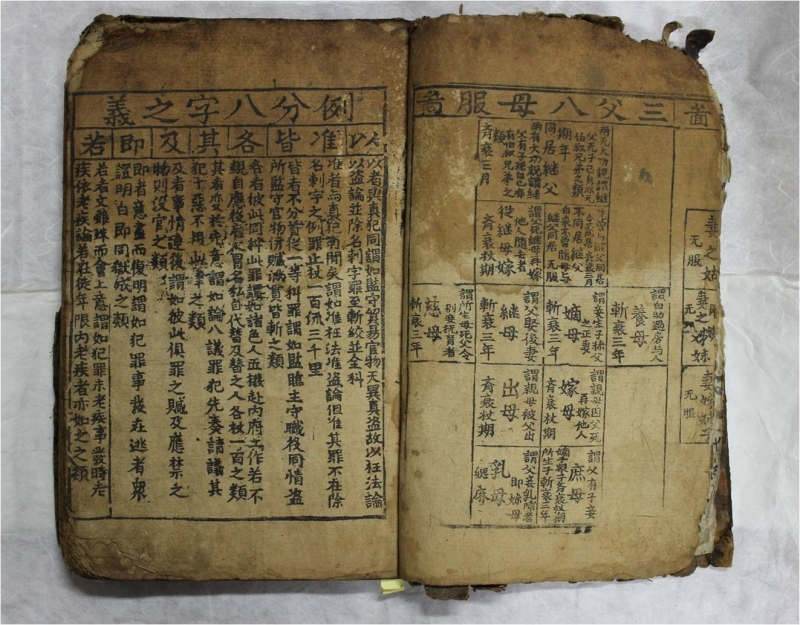 啚
三父八母服啚
妻之姑
无服
妻之姊妹
无服
无服
兩无大功親謂繼
父无子已身亦无
伯叔兄弟之類
期年
同居繼父
兩有大功親謂繼
父有子孫自己亦
有伯叔兄弟之
類
齊衰三月
不同居繼父
无服
謂父死繼母再嫁
他人隨去者
從繼母嫁
齊衰杖期
謂自幼過房与人
養母
斬衰三年
謂妾生子称父
正妻
嫡母
斬衰三年
謂父娶後妻
継母
斬衰三年
謂所生母死父令
別妾撫育者
慈母
斬衰三年
謂親母因父死
再嫁他人
嫁母
齊衰杖期
謂親母被父出
出母
齊衰杖期
謂父有子妾
嫡子衆子齊衰杖期
所生子斬衰三年
庶母
謂父妾乳哺者
即妳母
乳母
緦麻
例分八字之義
以 准 皆 各 其 及 即 若
以者與真犯同謂如監守貿易官物无異真盜故以枉法論
以盜論並除名刺字罪至斬絞並全科
准者爲真犯有間矣謂如准枉法准盜論但准其罪不在除
名刺字之例罪止杖一百流三千里
皆者不分首從一等科罪謂如監臨主守職役同情盜
所監守官物併贓滿貫皆斬之類
各者彼此同科此罪謂如諸色人匠撥赴内府工作若不
親自應役雇人冒名私自代替及替之人各杖一百之類
其者变於先意謂如論八議罪犯先奏請議其
犯十惡不用此律之類
及者事情連後謂如彼此俱罪之贓及應禁之
物則没官之類
即者意盡而復明謂如犯罪事發在逃者衆
證明白即同獄成之類
若者文雖殊而會上意謂如犯罪未老疾事發時老
疾依老疾論若在徒年限内老疾者亦如之之類